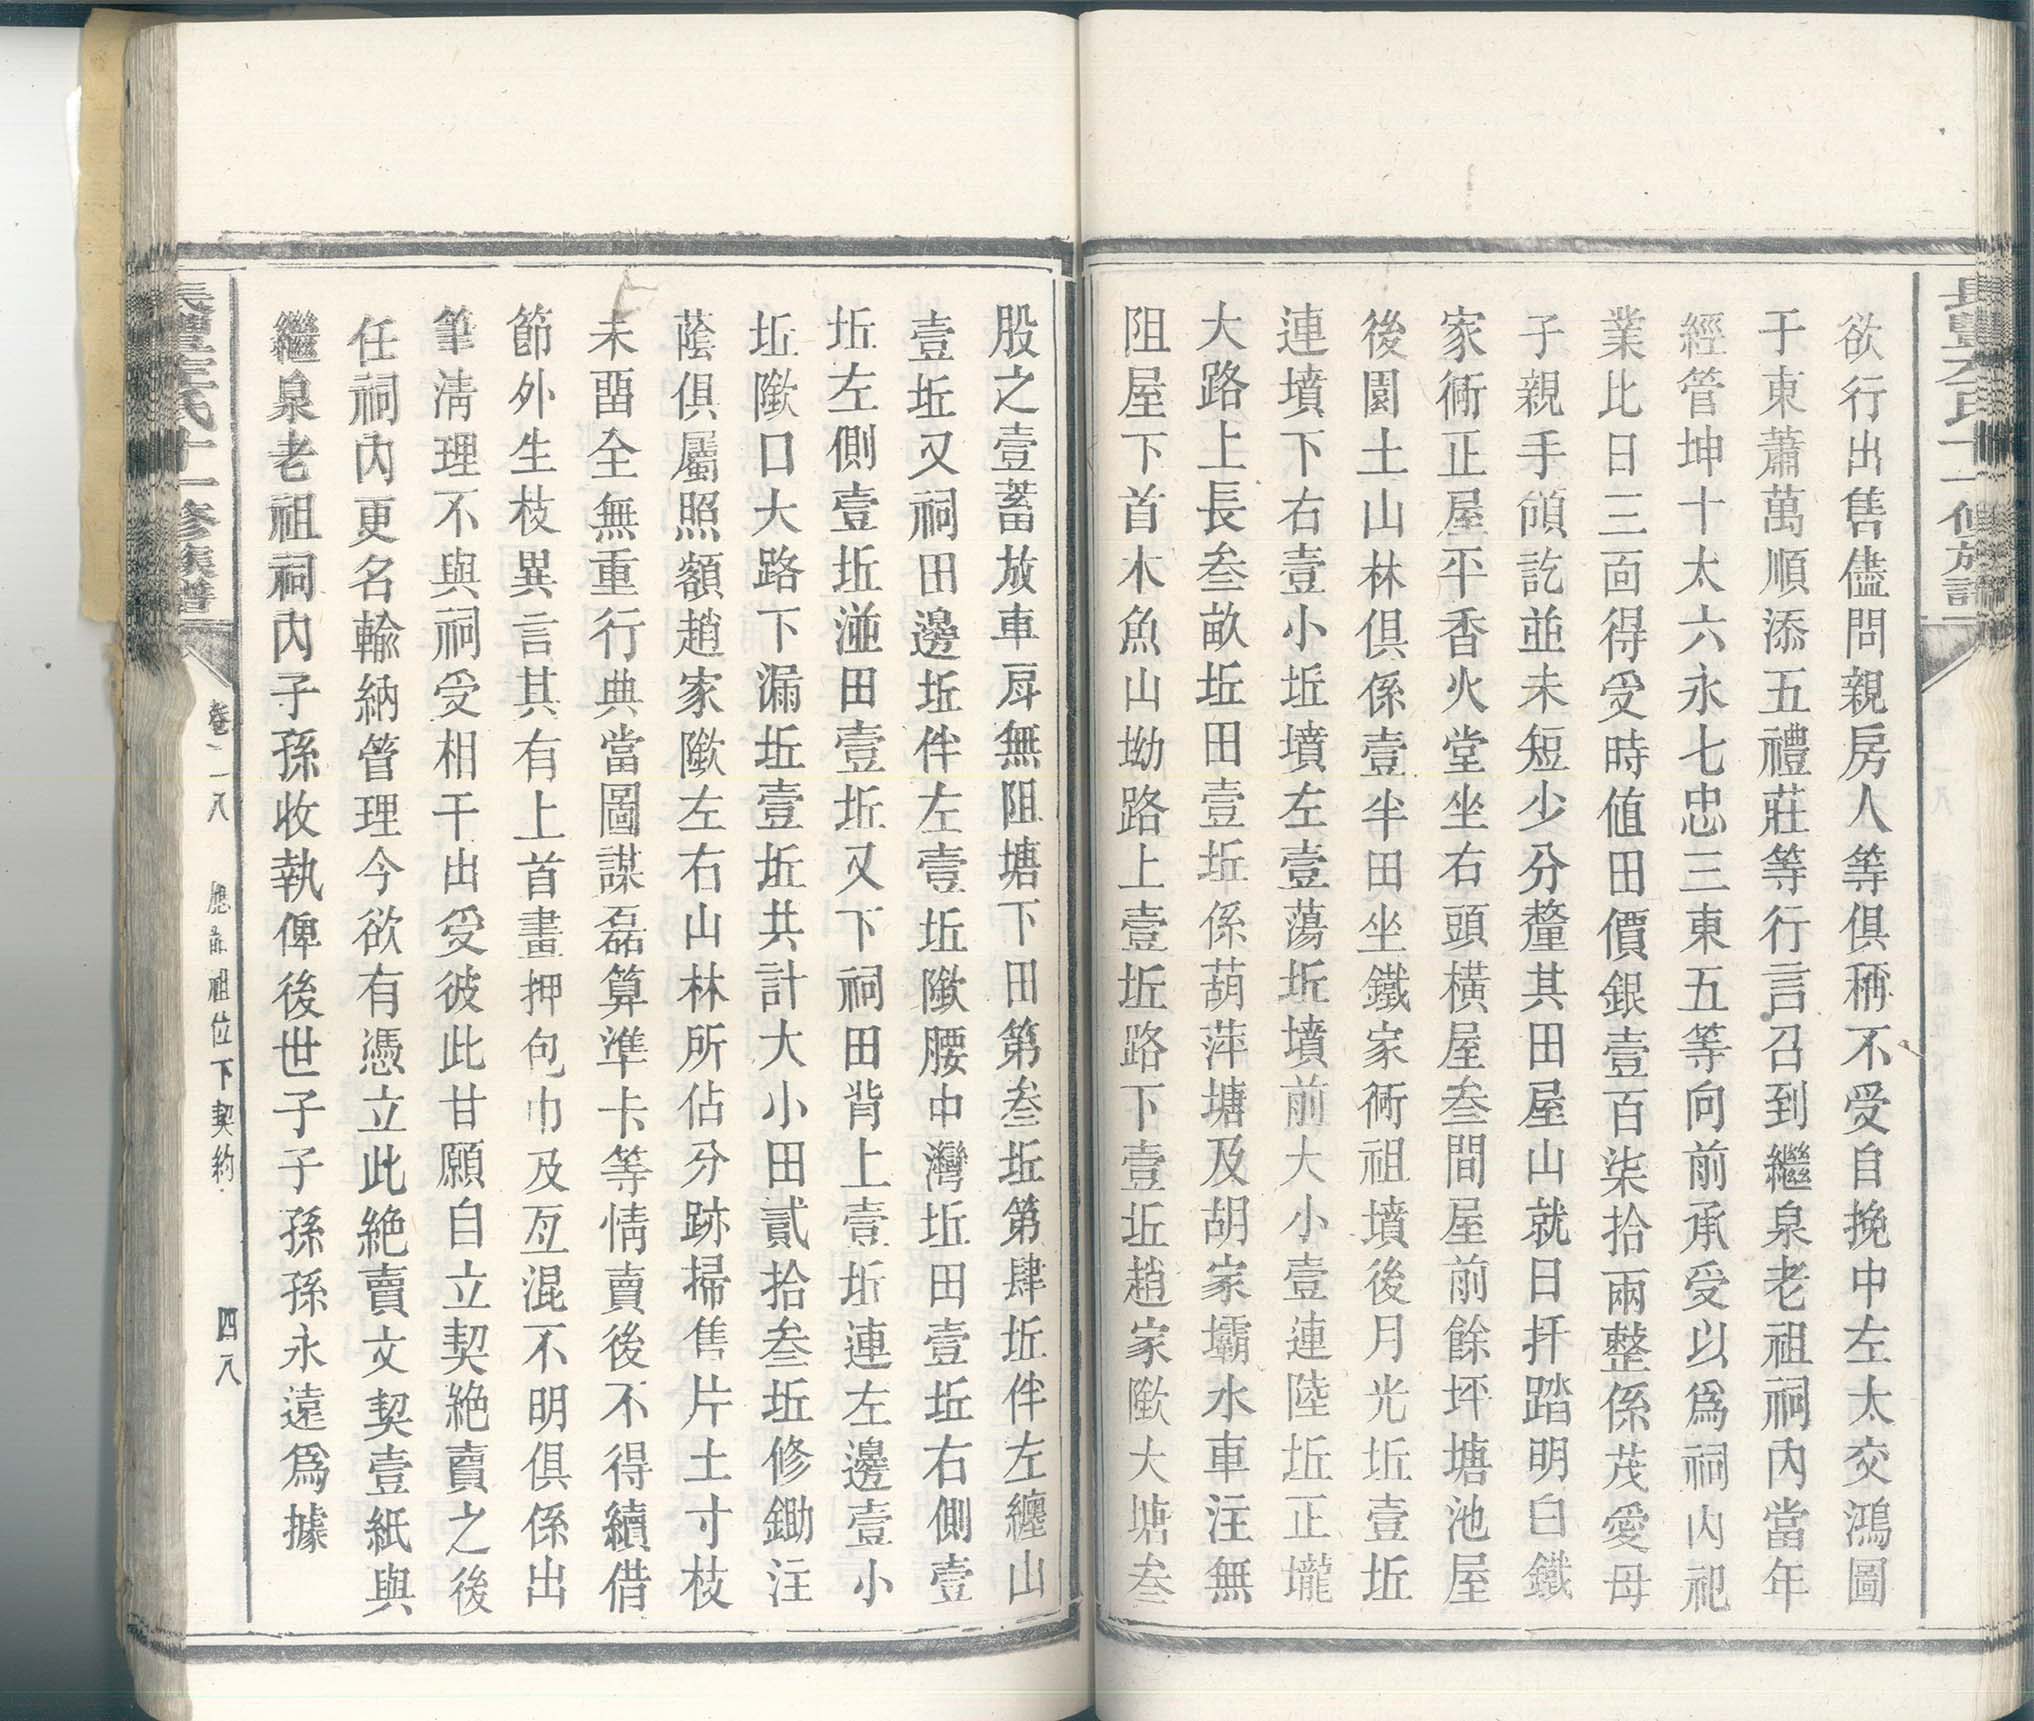 欲行出售儘問親房人等俱稱不受自挽中左太交鴻圖
于東蕭萬順添五禮莊等行言召到繼泉老祖祠內當年
經管坤十太六永七忠三東五等向前承受以爲祠內祀
業比日三面得受時值田價銀壹百柒拾兩整係茂愛母
子親手領訖並未短少分釐其田屋山就日扦踏明白鐵
家衕正屋平香火堂坐右頭橫屋叁間屋前餘坪塘池屋
後園土山林俱係壹半田坐鐵家衕祖墳後月光坵壹坵
連墳下右壹小坵墳左壹蕩坵墳前大小壹連陸坵正壠
大路上長叁畝坵田壹坵係葫萍塘及胡家壩水車注無
阻屋下首木魚山坳路上壹坵路下壹坵趙家隞大塘叁
股之壹蓄放車戽無阻塘下田第叁坵第肆坵伴左纏山
壹坵又祠田邊坵伴左壹坵隞腰中灣坵田壹坵右側壹
坵左側壹坵湴田壹坵又下祠田背上壹坵連左邊壹小
坵隞口大路下漏坵壹坵共計大小田貳拾叁坵修鋤注
蔭俱屬照額趙家隞左右山林所佔分跡掃售片土寸枝
未畱全無重行典當圖謀磊算準卡等情賣後不得續借
節外生枝異言其有上首畫押包巾及互混不明俱係出
筆淸理不與祠受相干出受彼此甘願自立契絶賣之後
任祠內更名輸納管理今欲有憑立此絶賣文契壹紙與
繼泉老祖祠內子孫收執俾後世子子孫孫永遠爲據
氏十一修族譜
卷一八
祖位下契約
四八